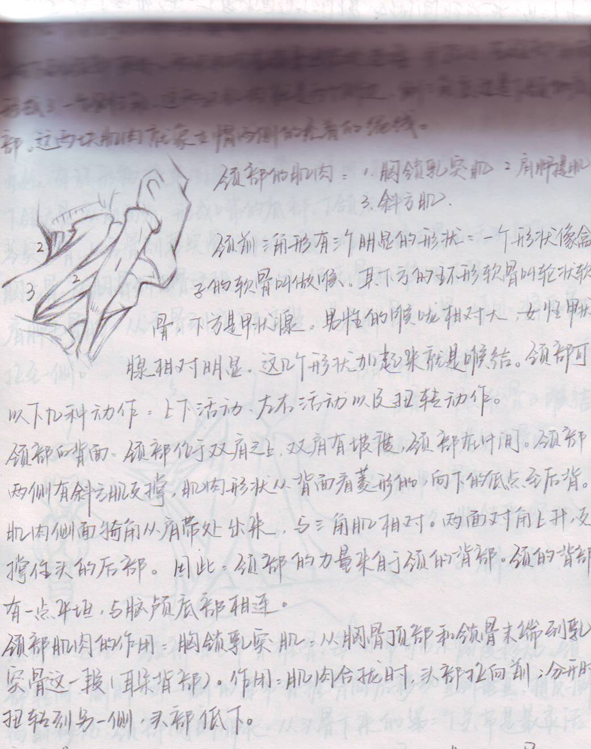 部。这两块肌肉就象衣帽两侧的垂着的绳线。
颈部的肌肉：1.胸锁乳突肌 2.肩胛提肌
3.斜方肌.
颈前三角形有三个明显的形状：一个形状像盒
子的软骨叫做喉、其下方的环形软骨叫轮状软
骨，下方是甲状腺。男性的喉咙相对大，女性甲状
腺相对明显。这几个形状加起来就是喉结。颈部可
以下几种动作：上下活动、左右活动以及扭转动作。
颈部的背面：颈部位于双肩之上，双肩有坡度，颈部在中间。颈部
两侧有斜方肌支撑，肌肉形状从背面看菱形的，向下的低点至后背。
肌肉侧面犄角从肩带处出来，与三角肌相对。两面对角上升，支
撑住头的后部。因此：颈部的力量来自于颈的背部。颈的背部
有一点平坦，与脑颅底部相连。
颈部肌肉的作用：胸锁乳突肌：从胸骨顶部和锁骨末端到乳
突骨这一段（耳朵背部）。作用：肌肉合拢时，头部拉向前；分开时
扭转到另一侧，头部低下。
2
3
2